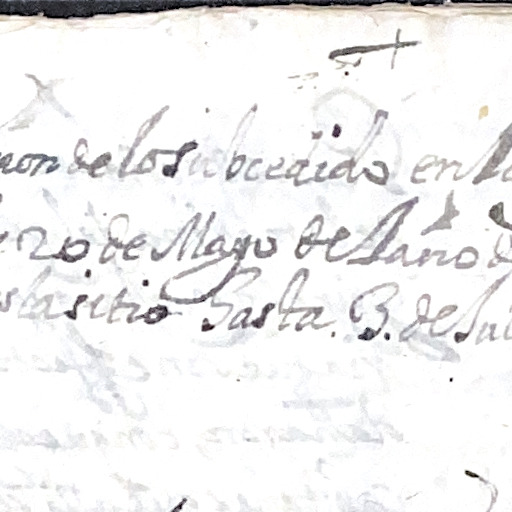 de lo subcedido en
20 de Mayo del año
sitio hasta 3. de